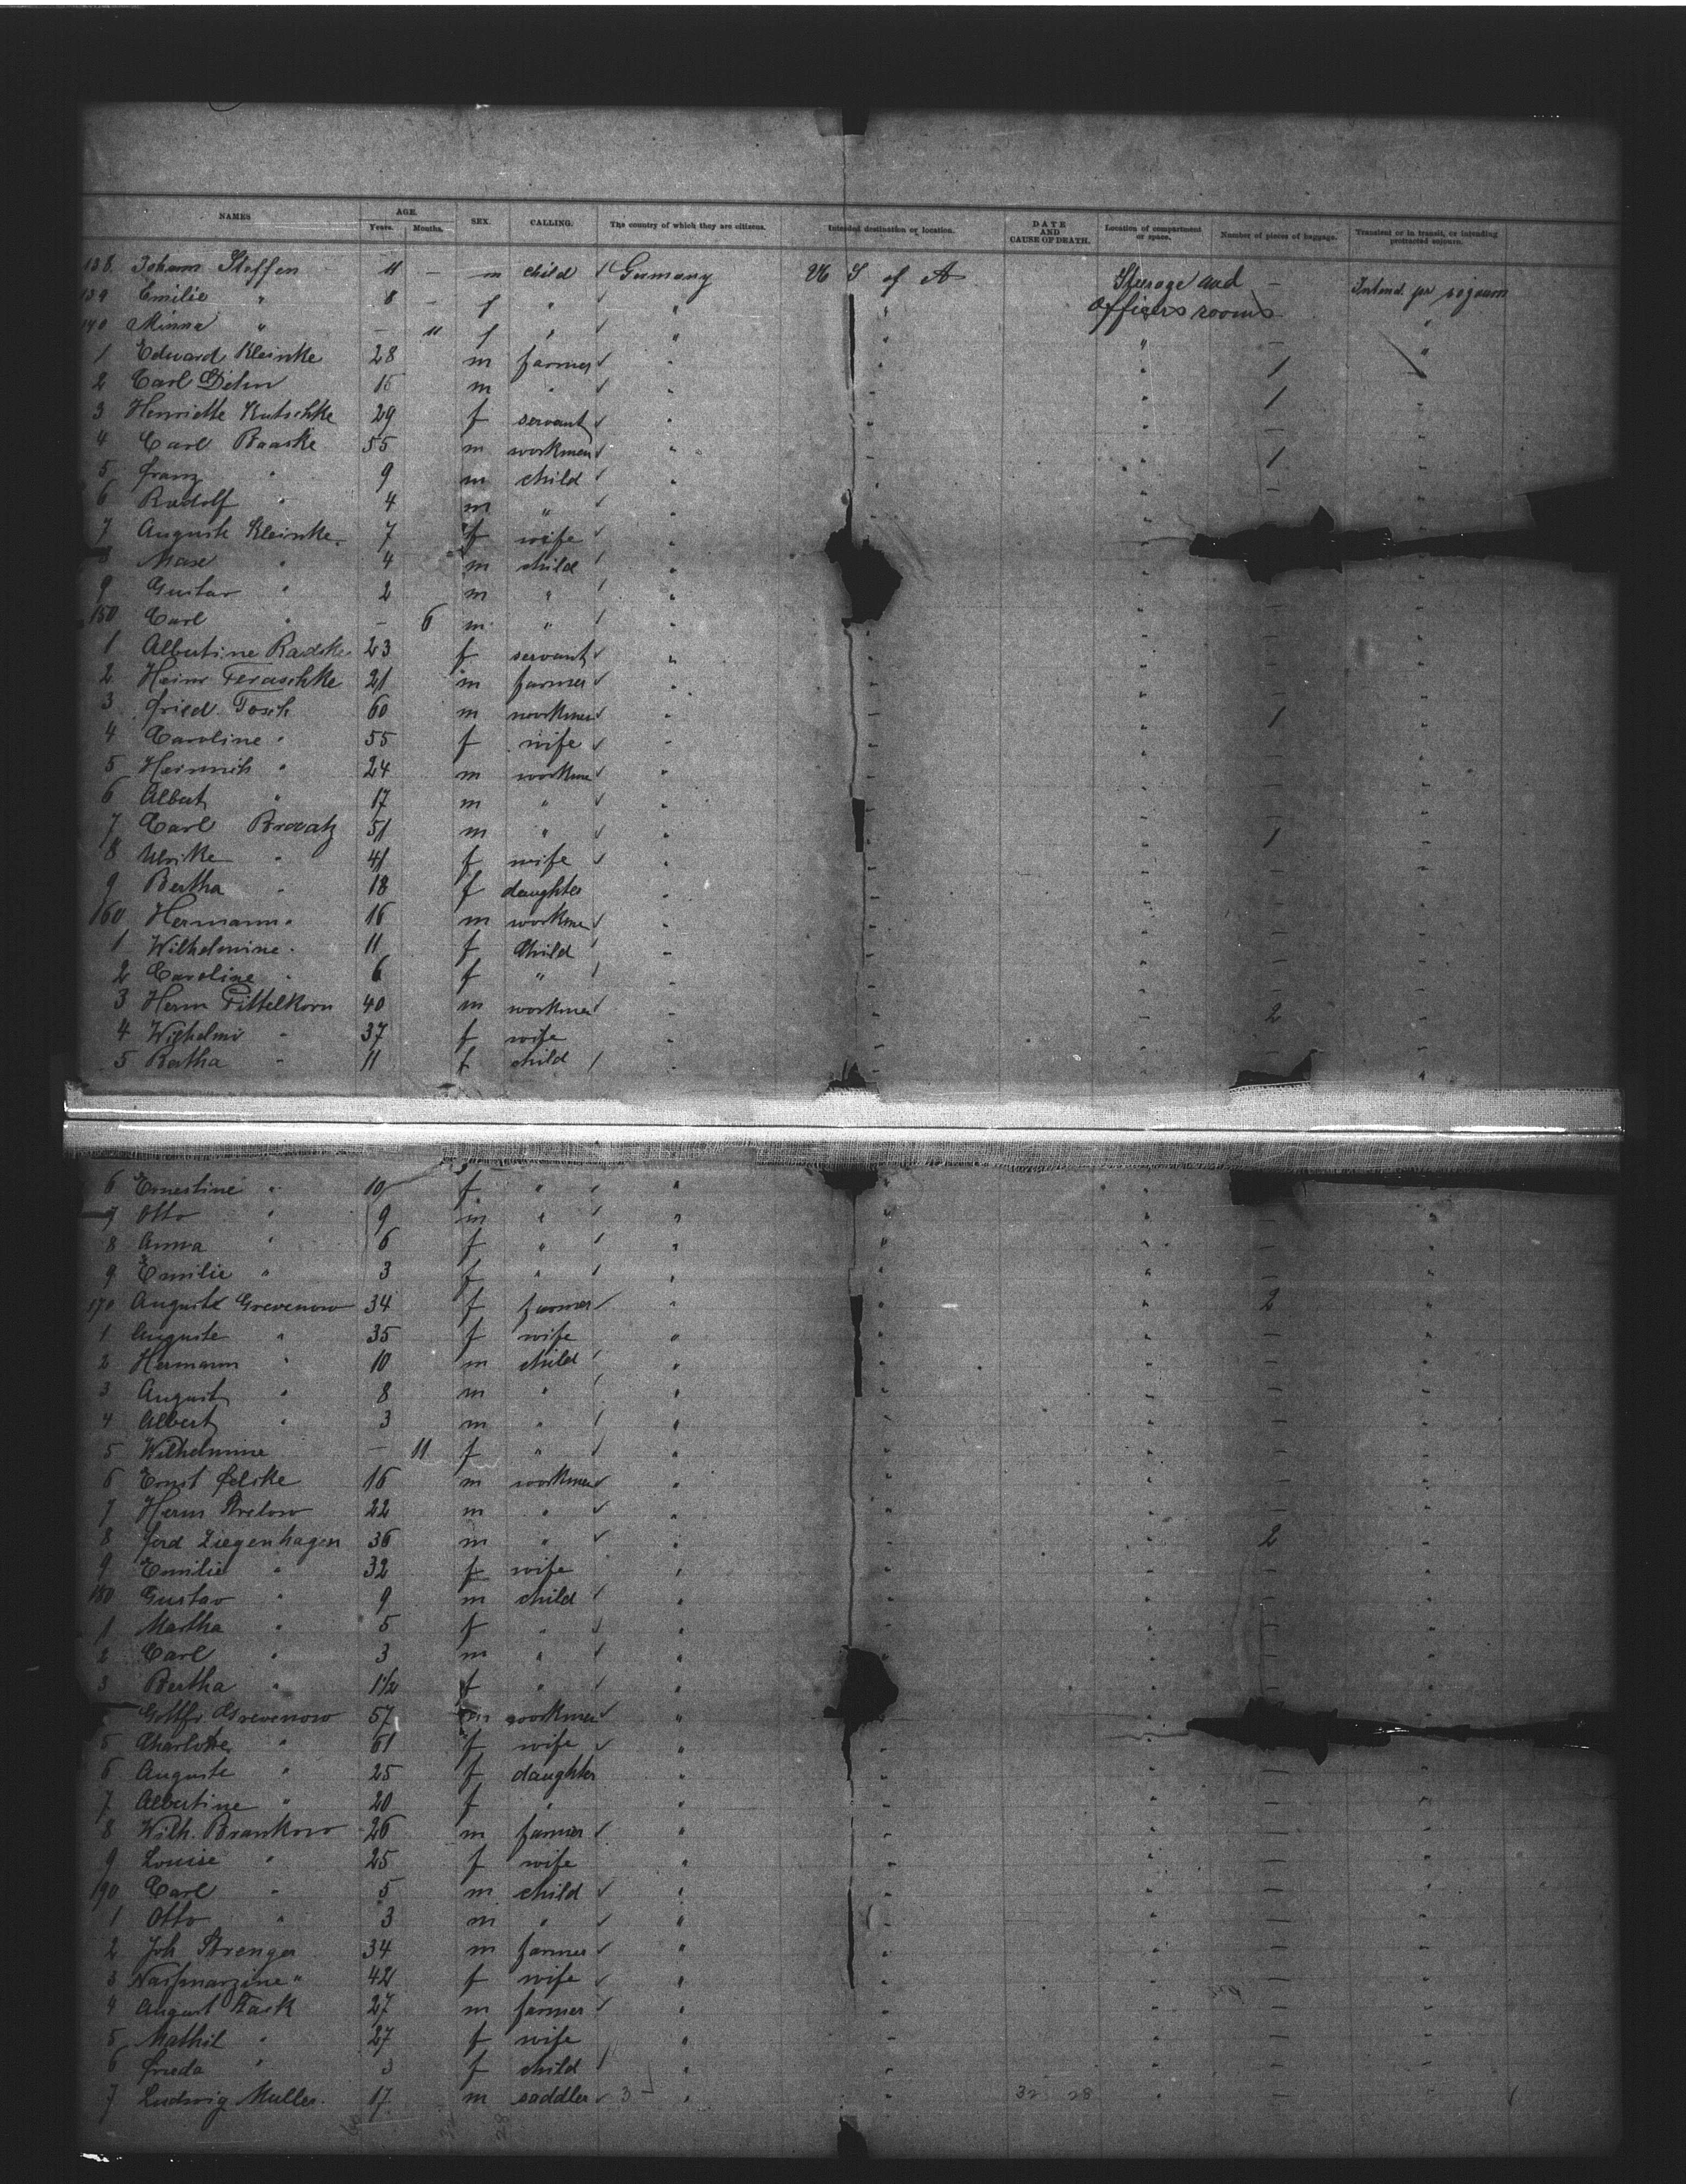 NAMES AGE. SEX. CALLING. The country of which they are citizens. Intended destination or location. DATE AND CAUSE OF DEATH. Location of compartment or space. Number of pieces of baggage. Transient or in transit, or intending protracted sojourn.
Years. Months.
138. Johann Steffen 11 – m child Germany U S of A Steerage and –
139 Emilie " 8 – f " " " Officers rooms
140 Minna " – 11 f " " " –
1 Edward Kleinke 28 m farmer " " " 1 "
2 Carl 15 m " " " " 1 "
3 Henriette Kutschke 29 f servant " " " – "
4 Carl Baaske 55 m workmen " " " 1 "
5 Franz " 9 m child " " " – "
6 Rudolf " 4 m " " " "
7 Auguste Kleinke 7 f wife "
8 " 4 m child "
9 Gustav " 2 m " " " – "
150 Carl " – 6 m " " " " – "
1 Albertine Radtke 23 f servant " " " – "
2 Heinr 21 m farmer " " " – "
3 Fried. Tosch 60 m workmen " " " 1 "
4 Caroline " 55 f wife " " " – "
5 Heinrich " 24 m workmen " " " – "
6 Albert " 17 m " " " " – "
7 Carl 51 m " " " " 1 "
8 Ulrike " 41 f wife " " " – "
9 Bertha " 18 f daughter " " " – "
160 Hermann " 16 m workmen " " " – "
1 Wilhelmine " 11 f Child " " " – "
2 Caroline " 6 f " " " " – "
3 Herm Tittelkorn 40 m workmen " " " 2 "
4 Wilhelmi " 37 f wife " " " – "
5 Bertha " 11 f child " " " "
6 Ernestine " 10 f " " " "
7 Otto " 9 m " " " " – "
8 Anna " 6 f " " " " – "
9 Emilie " 3 f " " " " – "
170 August Grevenow 34 f farmer " " " 2 "
1 Auguste " 35 f wife " " " – "
2 Hermann " 10 m child " " " – "
3 August " 8 m " " " " – "
4 Albert " 3 m " " " " – "
5 Wilhelmine – 11 f " " " " – "
6 Ernst Felske 16 m workmen " " " – "
7 Herm Strelow 22 m " " " " – "
8 Ferd Ziegenhagen 36 m " " " " 2 "
9 Emilie " 32 f wife " " " – "
180 Gustav " 9 m child " " " – "
1 Martha " 5 f " " " " – "
2 Carl " 3 m " " " " – "
3 Bertha " 1½ f " " " –
Gottfr. Grevenow 57 m workmen "
5 Charlotte " 61 f wife " " "
6 Auguste " 25 f daughter " " " – "
7 Albertine " 20 f " " " " – "
8 Wilh. Brankow 26 m farmer " " " – "
9 Louise " 25 f wife " " " – "
190 Carl " 5 m child " " " – "
1 Otto " 3 m " " " " – "
2 Joh Strenger 34 m farmer " " " – "
3 " 42 f wife " " " – "
4 August 27 m farmer " " " – "
5 Mathil " 27 f wife " " " – "
6 Frieda " 3 f child " " " – "
7 Ludwig Muller 17 m saddler 3 " " 32 28 " – "